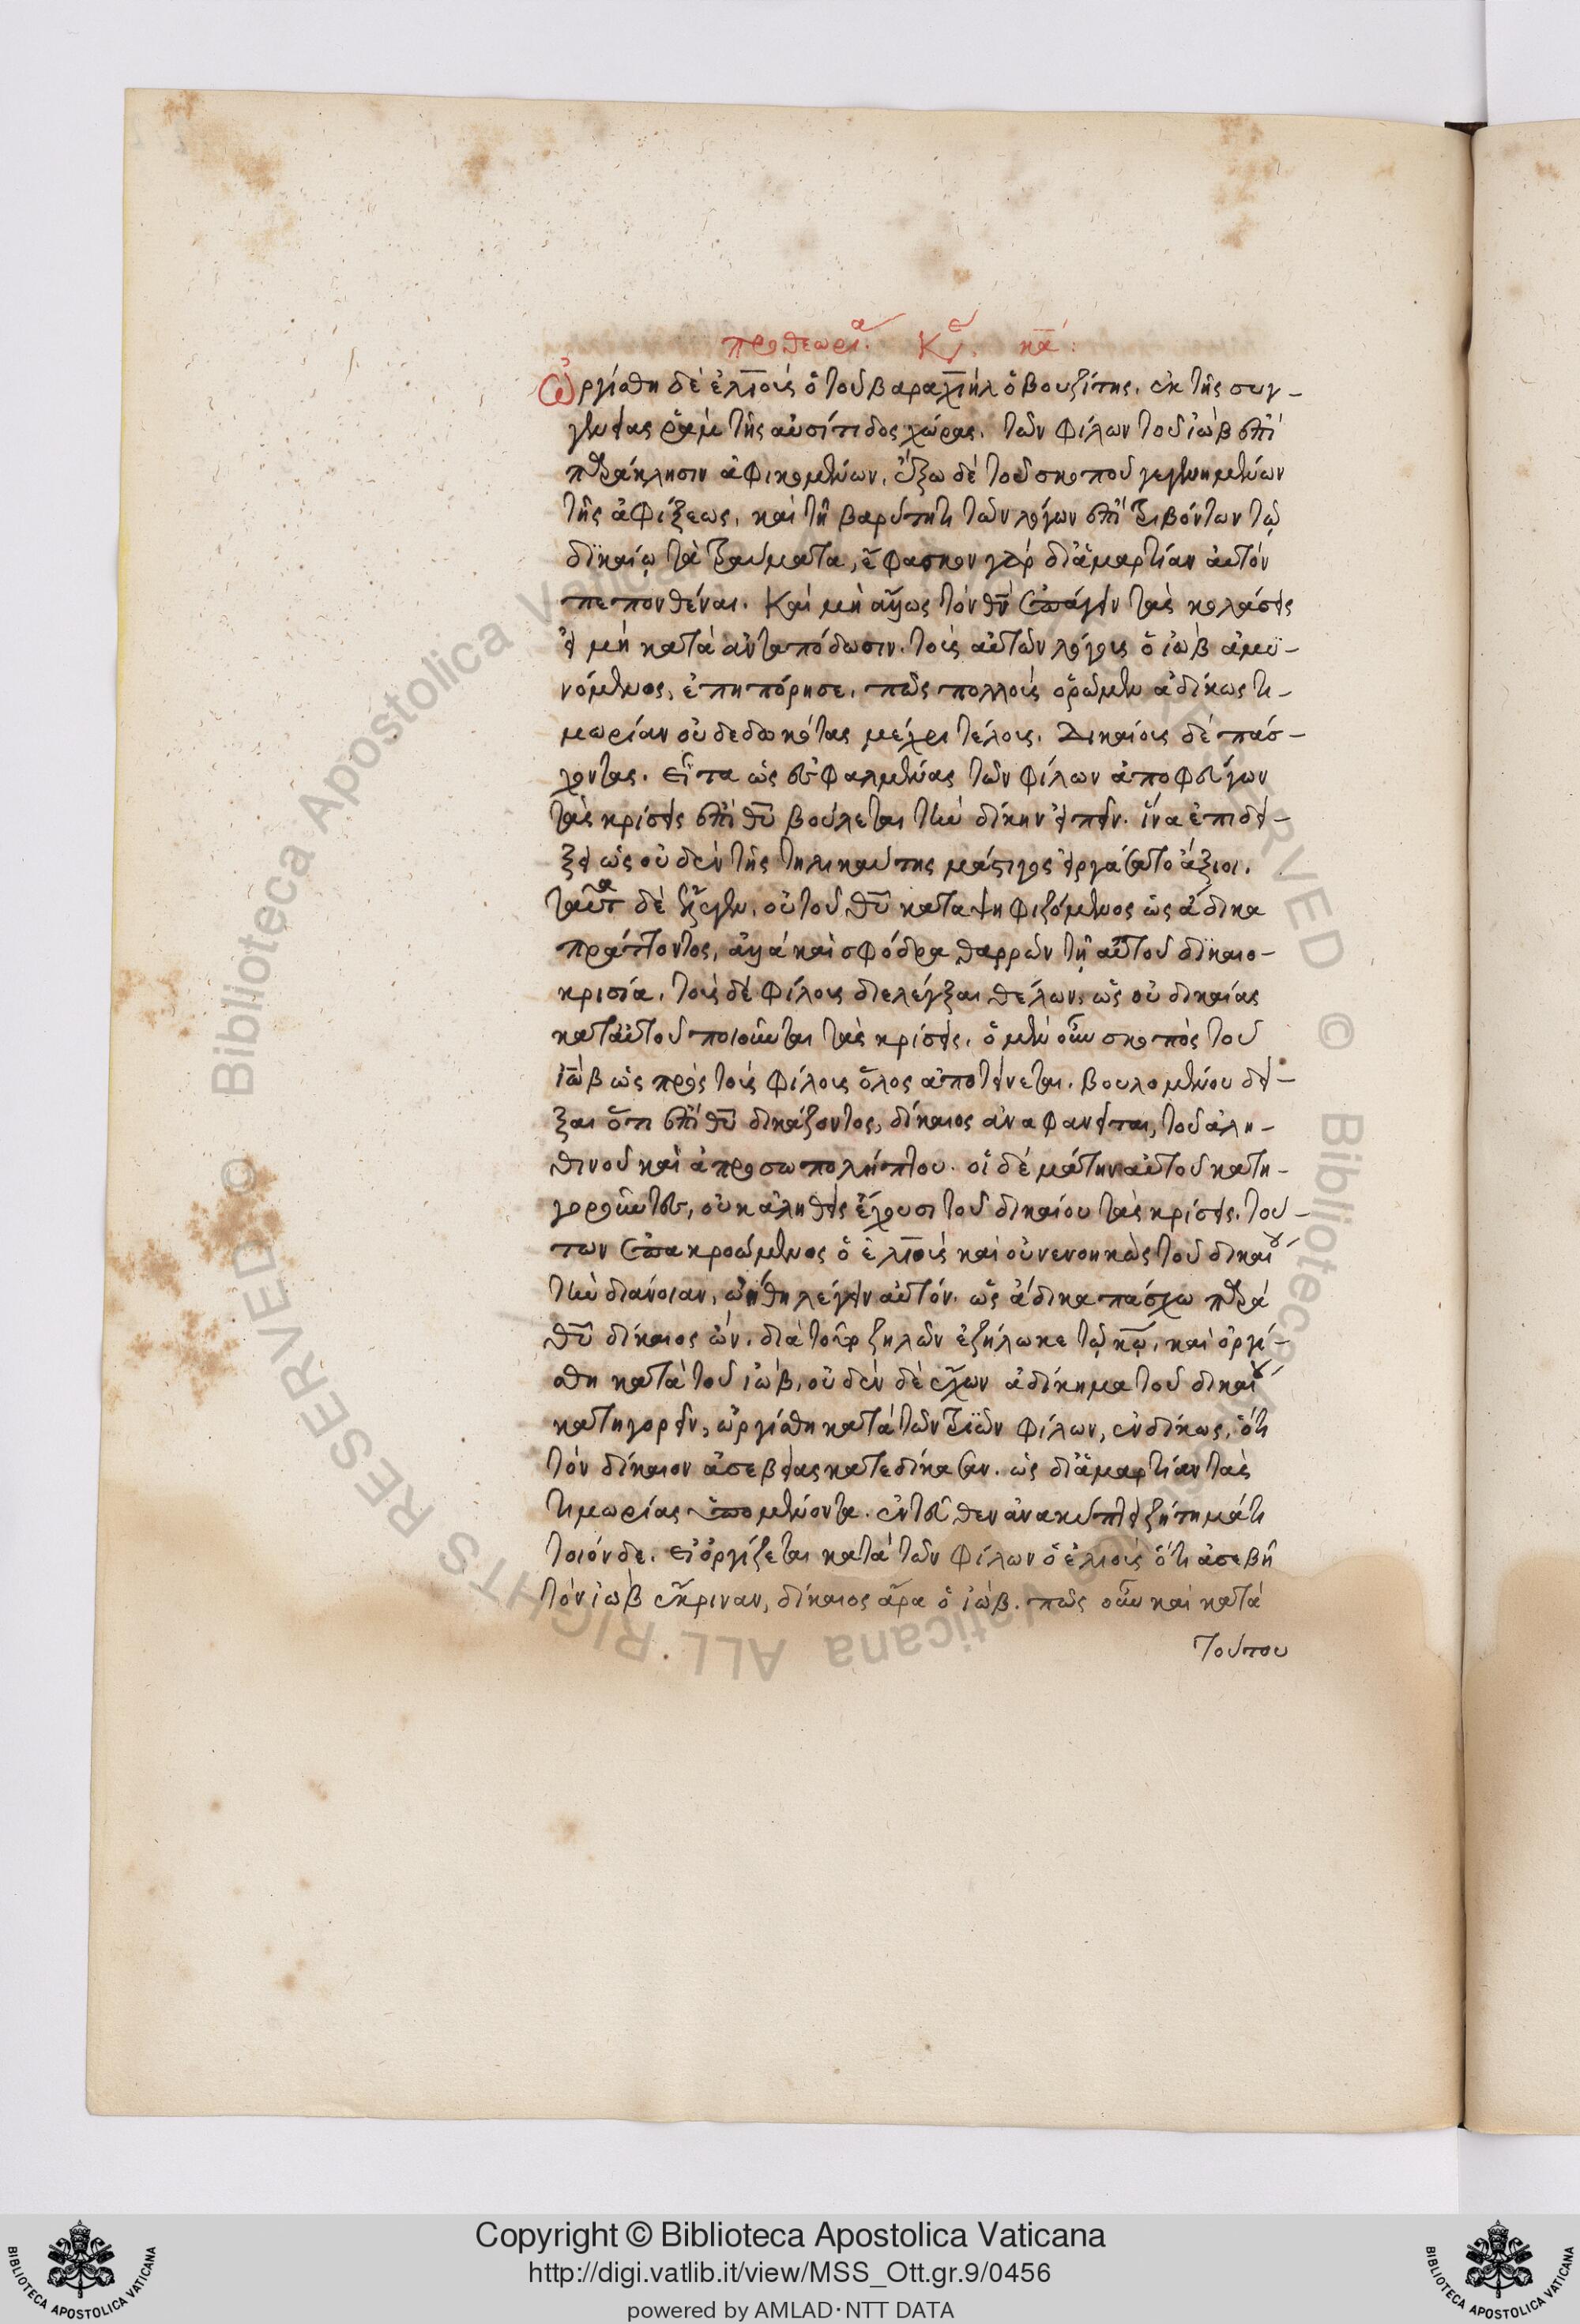 προθεωρία. Κεφ. κα΄:
Ὠργίσθη δὲ ἐλιοὺς ὁ τοῦ βαραχιὴλ ὁ βουζίτης, ἐκ τῆς συγ-
γενείας ῥὰμ τῆς αὐσίτιδος χώρας. τῶν φίλων τοῦ ἰὼβ ἐπὶ
παράκλησιν ἀφικομένων, ἔξω δὲ τοῦ σκοποῦ γεγενημένων
τῆς ἀφίξεως, καὶ τῇ βαρύτητι τῶν λόγων ἐπιτριβόντων τῷ
δικαίῳ τὰ τραύματα, ἔφασκον γὰρ δι' ἁμαρτίαν αὐτὸν
πεπονθέναι. καὶ μὴ ἄλλως τὸν θν̅ ἐπάγειν τὰς κολάσεις
εἰ μὴ κατὰ ἀνταπόδωσιν. τοῖς αὐτῶν λόγοις ὁ ἰὼβ ἀμυ-
νόμενος, ἐπηπόρησε, πῶς πολλοὺς ὁρῶμεν ἀδίκως τι-
μωρίαν οὐ δεδωκότας μέχρι τέλους. Δικαίους δὲ πάσ-
χοντας. εἶτα ὡς ἐσφαλμένας τῶν φίλων ἀποφεύγων
τὰς κρίσεις ἐπὶ θῦ βούλεται τὴν δίκην εἰπεῖν. ἵνα ἐπιδεί-
ξει ὡς οὐδὲν τῆς τηλικαύτης μάστιγος εἰργάσατο ἄξιον.
ταῦτα δὲ ἔλεγεν, οὐ τοῦ θῦ καταψηφιζόμενος ὡς ἄδικα
πράττοντος, ἀλλὰ καὶ σφόδρα θαρρῶν τῇ αὐτοῦ δικαιο-
κρισία. τοὺς δὲ φίλους διελέγξαι θέλων, ὡς οὐ δικαίας
κατ' αὐτοῦ ποιοῦνται τὰς κρίσεις. ὁ μὲν οὖν σκοπὸς τοῦ
ἰὼβ ὡς πρὸς τοὺς φίλους ὅλος ἀποτείνεται. βουλομένου δεῖ-
ξαι ὅτι ἐπὶ θῦ δικάζοντος, δίκαιος ἀναφανεῖται, τοῦ ἀλη-
θινοῦ καὶ ἀπροσωπολήπτου. οἱ δὲ μάτην αὐτοῦ κατη-
γοροῦντες, οὐκ ἀληθεῖς ἔχουσι τοῦ δικαίου τὰς κρίσεις. τού-
των ἐπακροώμενος ὁ ἐλιοὺς καὶ οὐ νενοηκὼς τοῦ δικαίου
τὴν διάνοιαν, ᾠήθη λέγειν αὐτόν. ὡς ἄδικα πάσχω παρὰ
θῦ δίκαιος ὤν. διὰ τοῦτο ζηλῶν ἐζήλωκε τῷ κῷ, καὶ ὀργί-
σθη κατὰ τοῦ ἰώβ, οὐδὲν δὲ ἔχων ἀδίκημα τοῦ δικαίου
κατηγορεῖν, ὠργίσθη κατὰ τῶν τριῶν φίλων, ἐνδίκως, ὅτι
τὸν δίκαιον ἀσεβείας κατεδίκασαν. ὡς δι' ἁμαρτίαν τὰς
τιμωρίας ὑπομένοντα. ἐντεῦθεν ἀνακύπτει ζήτημά τι
τοιόνδε. εἰ ὀργίζεται κατὰ τῶν φίλων ὁ ἐλιοὺς ὅτι ἀσεβῆ
τὸν ἰὼβ ἔκριναν, δίκαιος ἄρα ὁ ἰώβ. πῶς οὖν καὶ κατὰ
τούτου
Copyright © Biblioteca Apostolica Vaticana
http://digi.vatlib.it/view/MSS_Ott.gr.9/0456
powered by AMLAD·NTT DATA
BIBLIOTECA APOSTOLICA VATICANA
BIBLIOTECA APOSTOLICA VATICANA
© Biblioteca Apostolica Vaticana ALL RIGHTS RESERVED